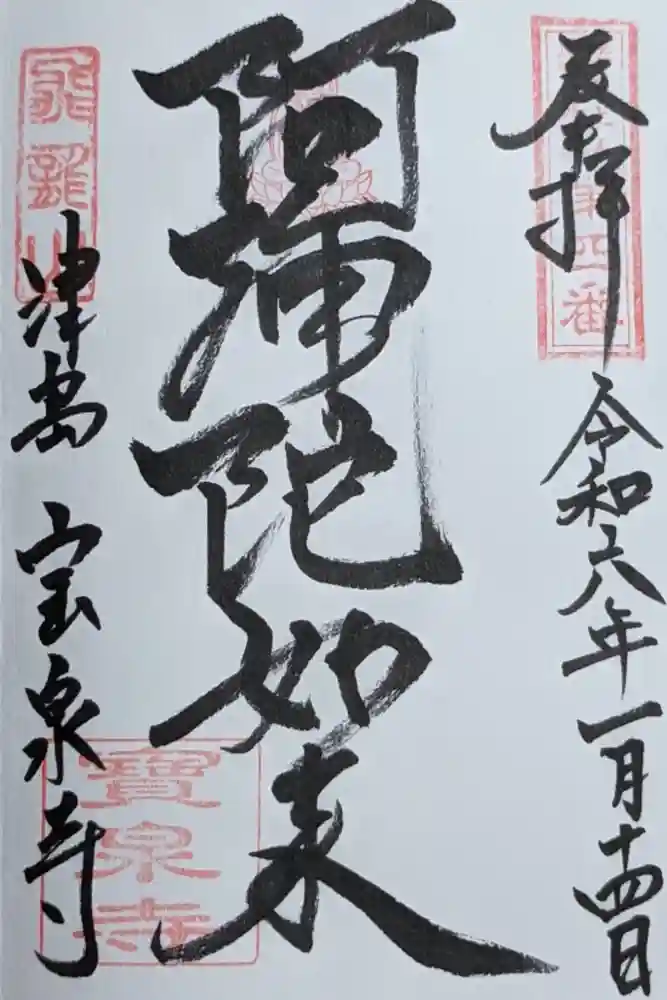 奉拝
令和六年一月十四日
第四番
阿彌陀如来
津島 宝泉寺
寶泉寺